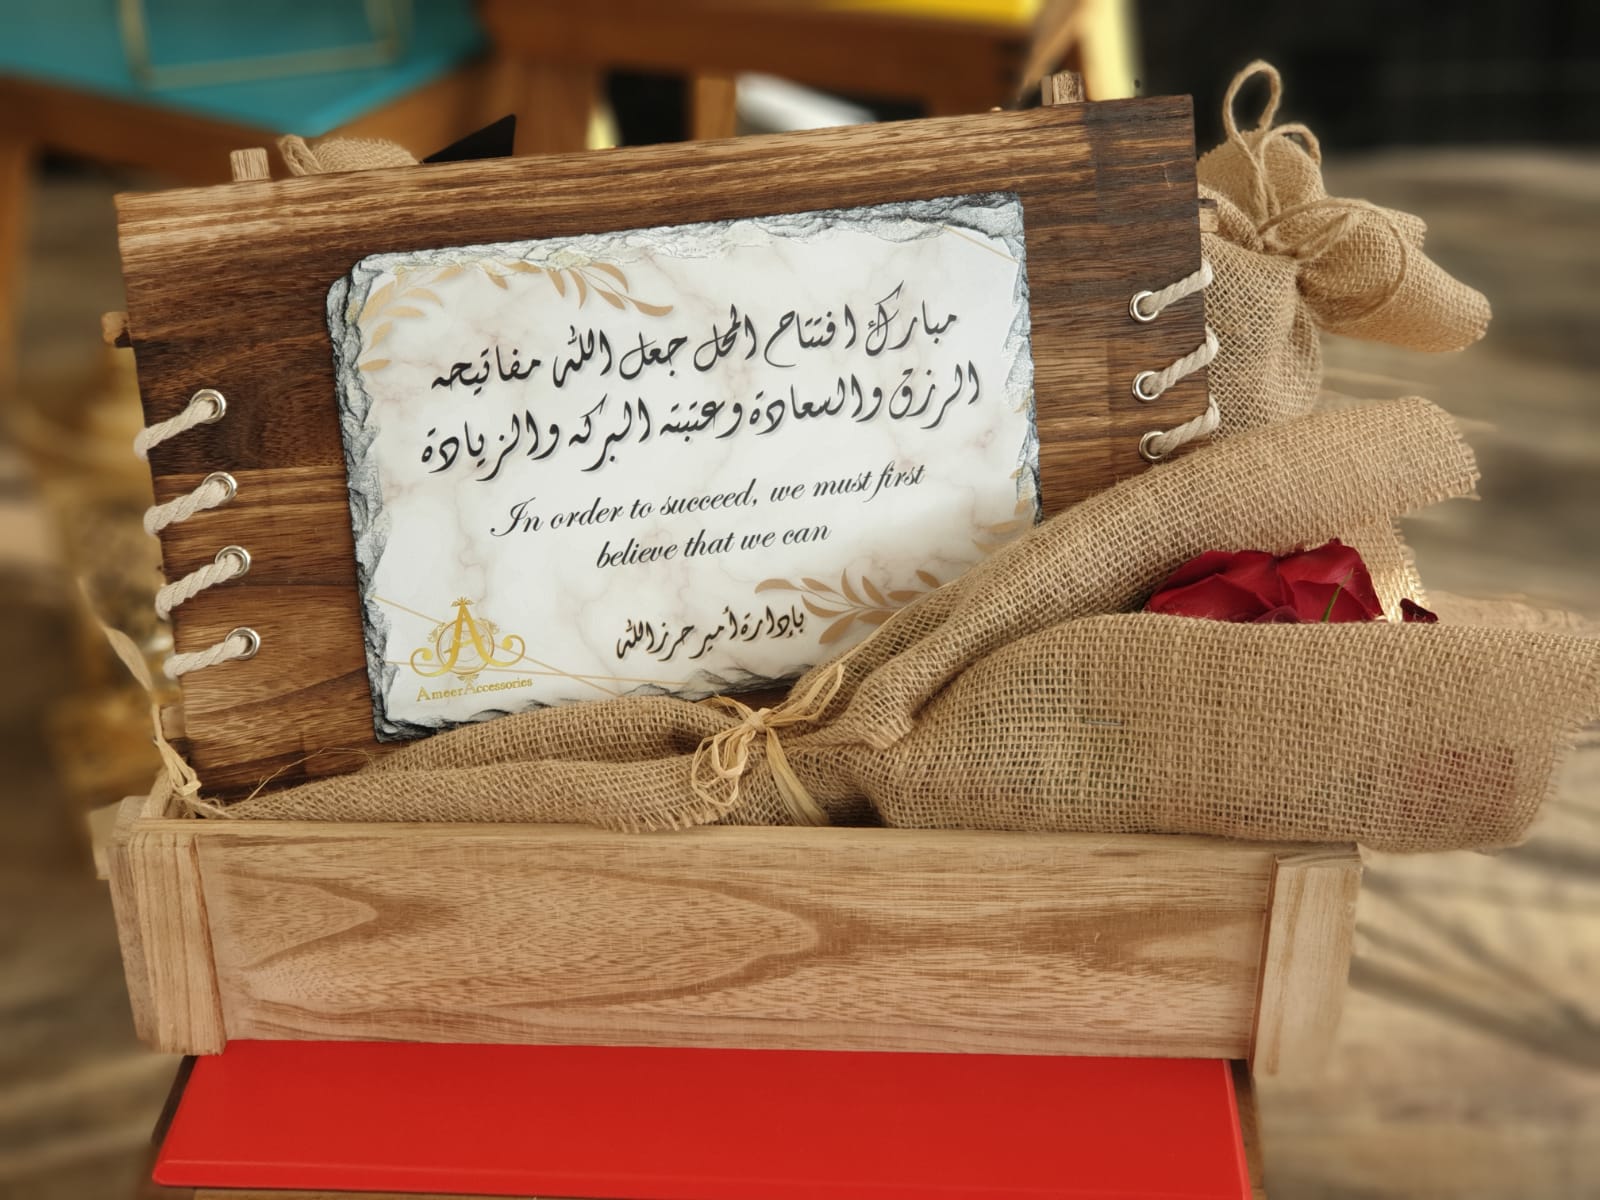 مبارك افتتاح المحل جعل الله مفاتيحه
الرزق والسعادة وعتبته البركه والزيادة
In order to succeed, we must first
believe that we can
بإدارة أمير حرزالله
A
Ameer Accessories